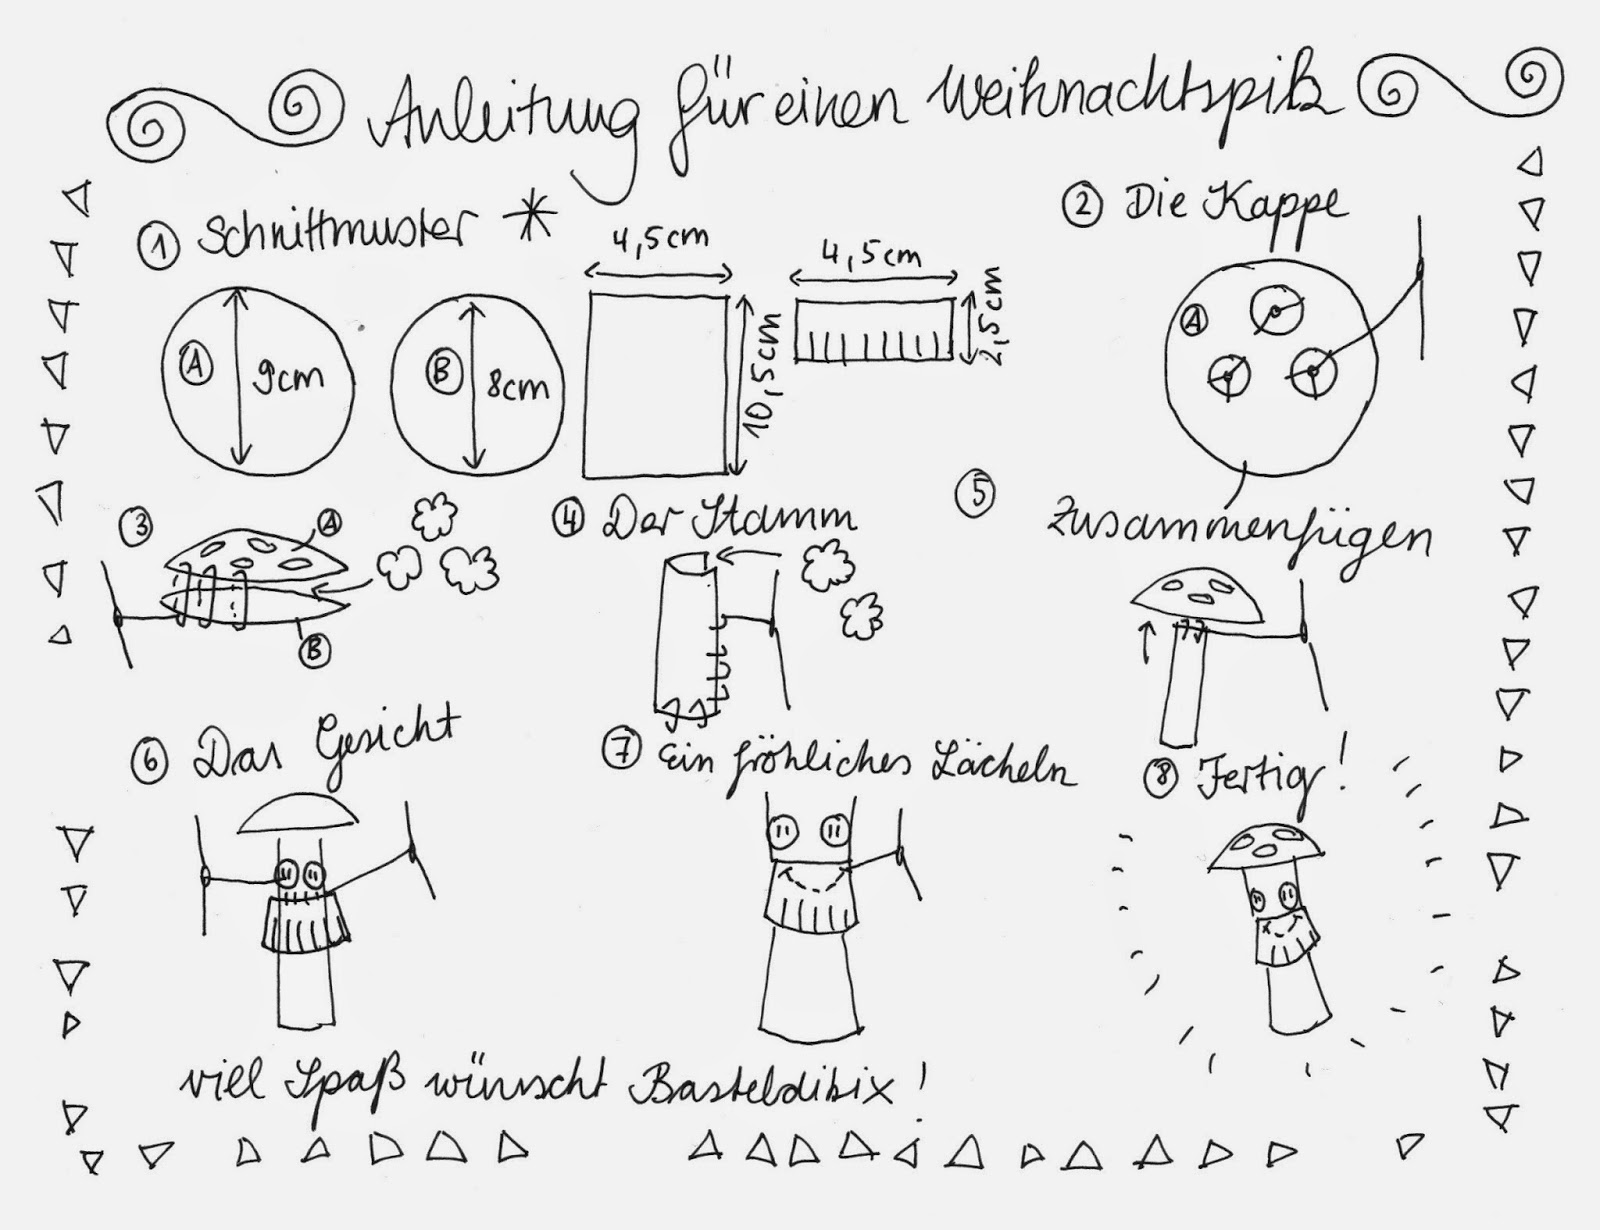 Anleitung für einen Weihnachtspilz
① Schnittmuster *
A 9cm
B 8cm
4,5cm
10,5cm
4,5cm
2,5cm
② Die Kappe
A
③
A
B
④ Der Stamm
⑤ Zusammenfügen
⑥ Das Gesicht
⑦ Ein fröhliches Lächeln
⑧ Fertig!
viel Spaß wünscht Basteldibix!